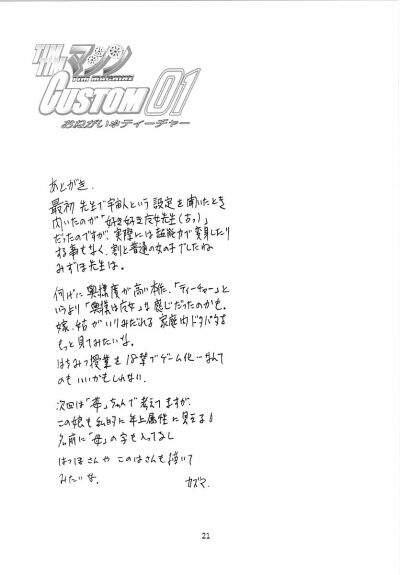 TIMTIMマシン
TIM MACHINE
CUSTOM 01
おねがい☆ティーチャー
あとがき.
最初 先生で宇宙人という設定を聞いたとき
だったのですが、実際には超能力で変身したり
する事もなく、割と普通の女の子でしたね
みずほ先生は。
何げに奥様度が高い作、「ティーチャー」と
いうより「奥様は魔女」な感じだったのかも。
嫁、姑がいりみだれる家庭内ドタバタを
もっと見てみたいな。
はちみつ授業を18禁でゲーム化…なんて
のもいいかもしんない.
次回は「苺」ちゃんで考えてますが
この娘も私的に年上属性に見える!
名前に「母」の字も入ってるし
はつほさんや このはさんも描いて
みたいな。
カズマ.
21